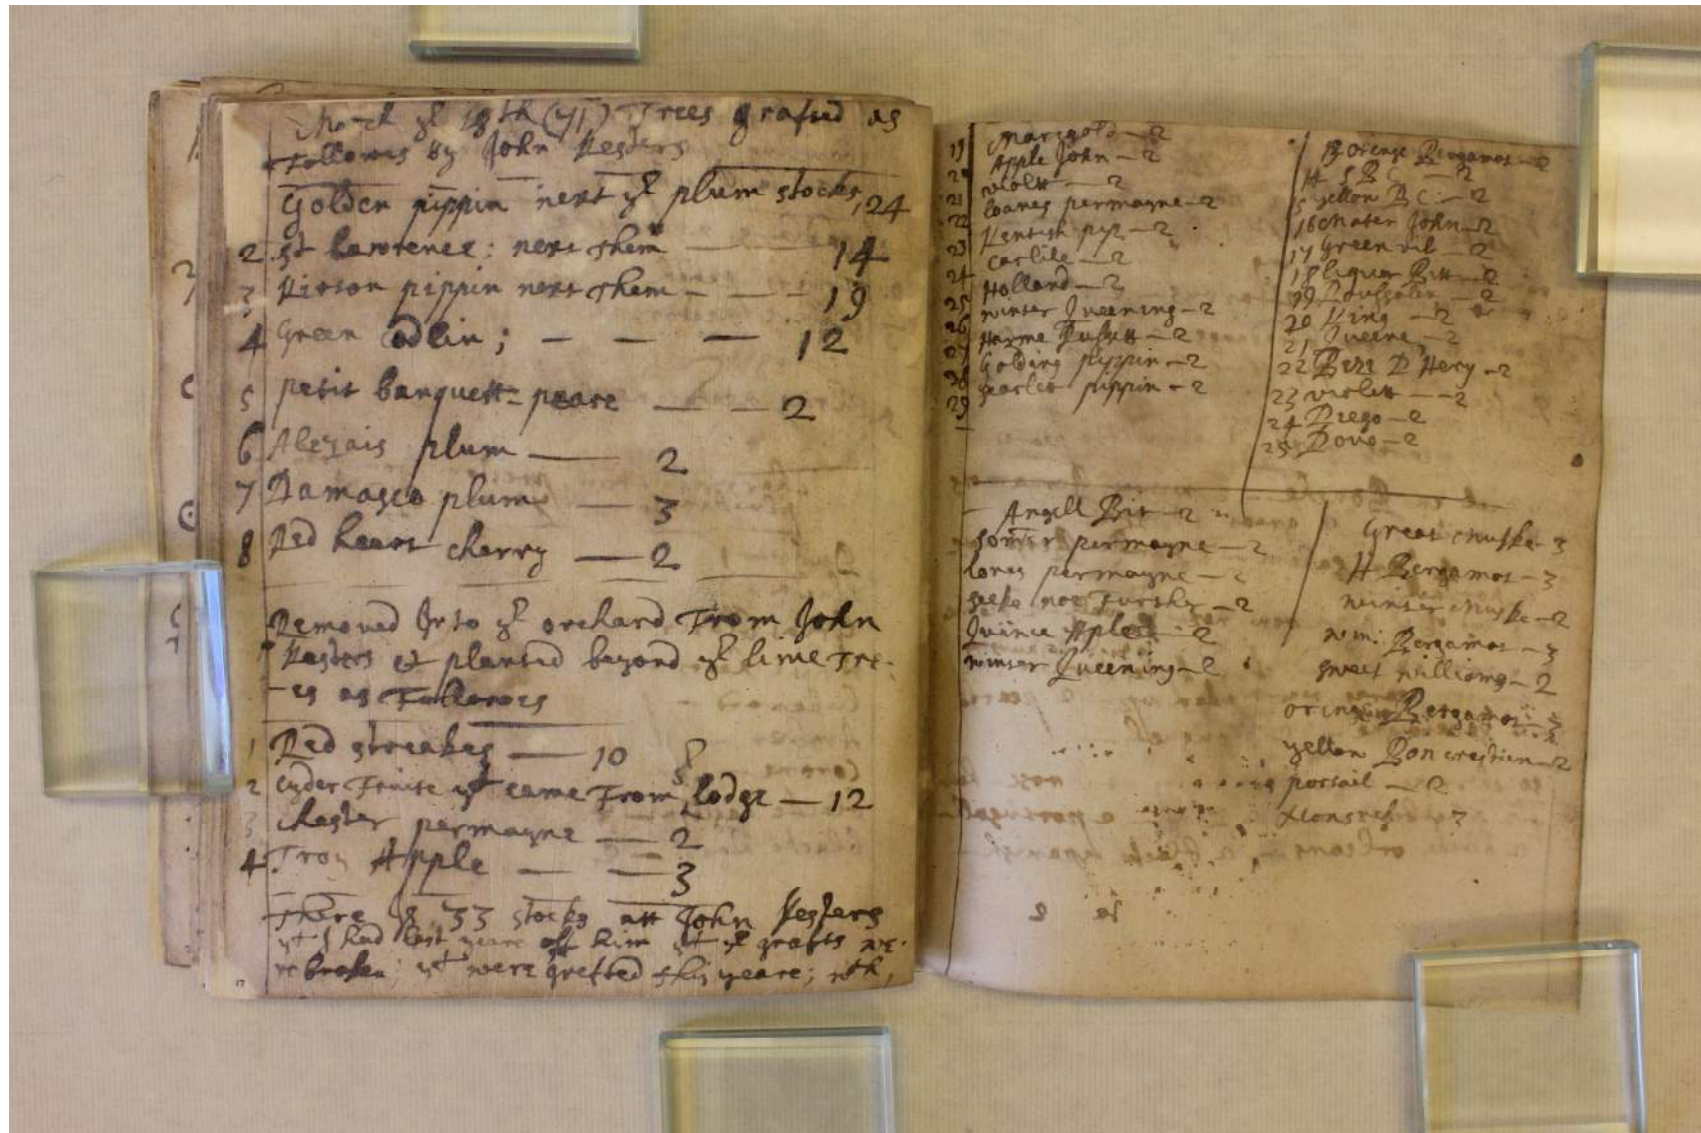 March ye 18th (71) Trees grafted as
Followes by John Kesters
Golden pippin next ye plum stocks, 24
2 st lawrence: next them — — 14
3 Kirton pippin next them - — - 19
4 Green odlin; — — — 12
5 petit banquett= peare — — 2
6 plum — 2
7 Damasco plum — 3
8 Red heart cherry — 2
Removed Into ye orchard From John
Kesters & planted beyond ye lime tre-
-es as Followes
1 Red streakes — 10
2 Cyder Fruite yt came From ye lodge — 12
3 Chester permayne — 2
4 Troy Apple — — 3
There is 33 stocks att John Kesters
yt I had last yeare off him yt ye grafts we-
re broken; yt were grefted this yeare; wth,
19 Marigold — 2
20 Apple John — 2
21 violett — 2
22 loanes permayne — 2
23 Kentish pip — 2
24 Carlile — 2
25 Holland — 2
26 winter Queening — 2
27 Russett — 2
28 Golding pippin — 2
29 scarlet pippin - 2
13 orenge Bergamot — 2
14 S B C — 2
15 yellow B C: — 2
16 Mater John — 2
17 Green vil — 2
18 — 2
19 — 2
20 King — 2
21 Queene — 2
22 D Hery - 2
23 violett — 2
24 Diego — 2
25 Dove — 2
Angell Bit — 2
Somer permayne — 2
lones permayne — 2
seeke noe Further — 2
Quince Aple — 2
winter Queening — 2
Great Muske - 3
H Bergamot — 3
winter Muske — 2
Bergamot — 3
sweet williams — 2
Bergamot — 3
yellow Bon crestien — 2
portail — 2